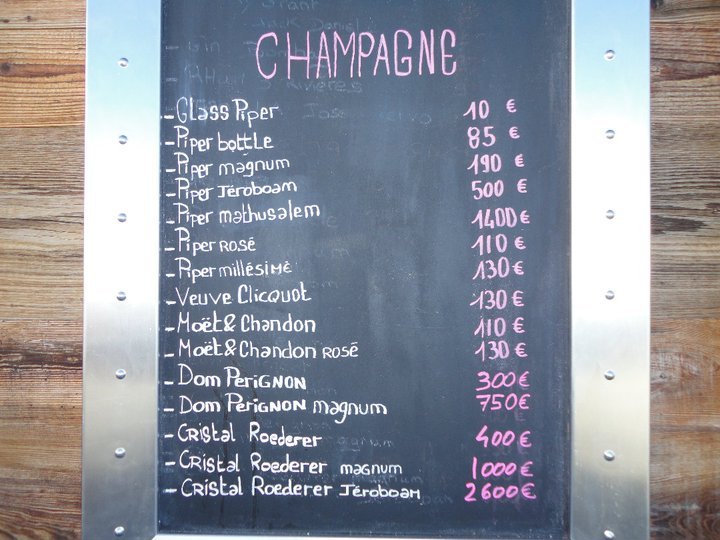 CHAMPAGNE
- Glass Piper 10 €
- Piper bottle 85 €
- Piper magnum 190 €
- Piper Jéroboam 500 €
- Piper mathusalem 1400 €
- Piper rosé 110 €
- Piper millésimé 130 €
- Veuve Clicquot 130 €
- Moët & Chandon 110 €
- Moët & Chandon rosé 130 €
- Dom PériGNON 300 €
- Dom PériGNON magnum 750 €
- Cristal Roederer 400 €
- Cristal Roederer magnum 1000 €
- Cristal Roederer Jéroboam 2600 €